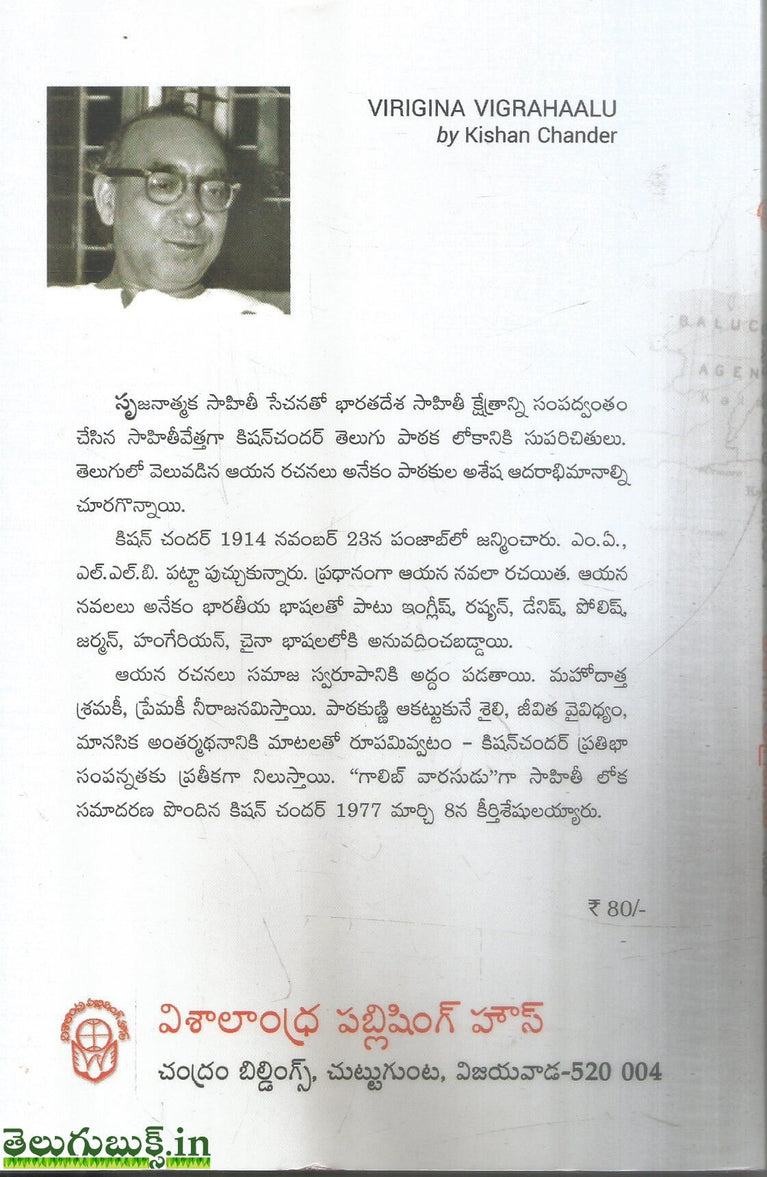 VIRIGINA VIGRAHAALU
by Kishan Chander
BALUC
AGEN
Kala
సృజనాత్మక సాహితీ సేచనతో భారతదేశ సాహితీ క్షేత్రాన్ని సంపద్వంతం
చేసిన సాహితీవేత్తగా కిషన్‌చందర్ తెలుగు పాఠక లోకానికి సుపరిచితులు.
తెలుగులో వెలువడిన ఆయన రచనలు అనేకం పాఠకుల అశేష ఆదరాభిమానాల్ని
చూరగొన్నాయి.
కిషన్ చందర్ 1914 నవంబర్ 23న పంజాబ్‌లో జన్మించారు. ఎం.ఏ.,
ఎల్.ఎల్.బి. పట్టా పుచ్చుకున్నారు. ప్రధానంగా ఆయన నవలా రచయిత. ఆయన
నవలలు అనేకం భారతీయ భాషలతో పాటు ఇంగ్లీష్, రష్యన్, డేనిష్, పోలిష్,
జర్మన్, హంగేరియన్, చైనా భాషలలోకి అనువదించబడ్డాయి.
ఆయన రచనలు సమాజ స్వరూపానికి అద్దం పడతాయి. మహోదాత్త
శ్రమకీ, ప్రేమకీ నీరాజనమిస్తాయి. పాఠకుణ్ణి ఆకట్టుకునే శైలి, జీవిత వైవిధ్యం,
మానసిక అంతర్మథనానికి మాటలతో రూపమివ్వటం - కిషన్‌చందర్ ప్రతిభా
సంపన్నతకు ప్రతీకగా నిలుస్తాయి. “గాలిబ్ వారసుడు”గా సాహితీ లోక
సమాదరణ పొందిన కిషన్ చందర్ 1977 మార్చి 8న కీర్తిశేషులయ్యారు.
₹ 80/-
విశాలాంధ్ర పబ్లిషింగ్ హౌస్
విశాలాంధ్ర పబ్లిషింగ్ హౌస్
చంద్రం బిల్డింగ్స్, చుట్టుగుంట, విజయవాడ-520 004
తెలుగుబుక్స్.in